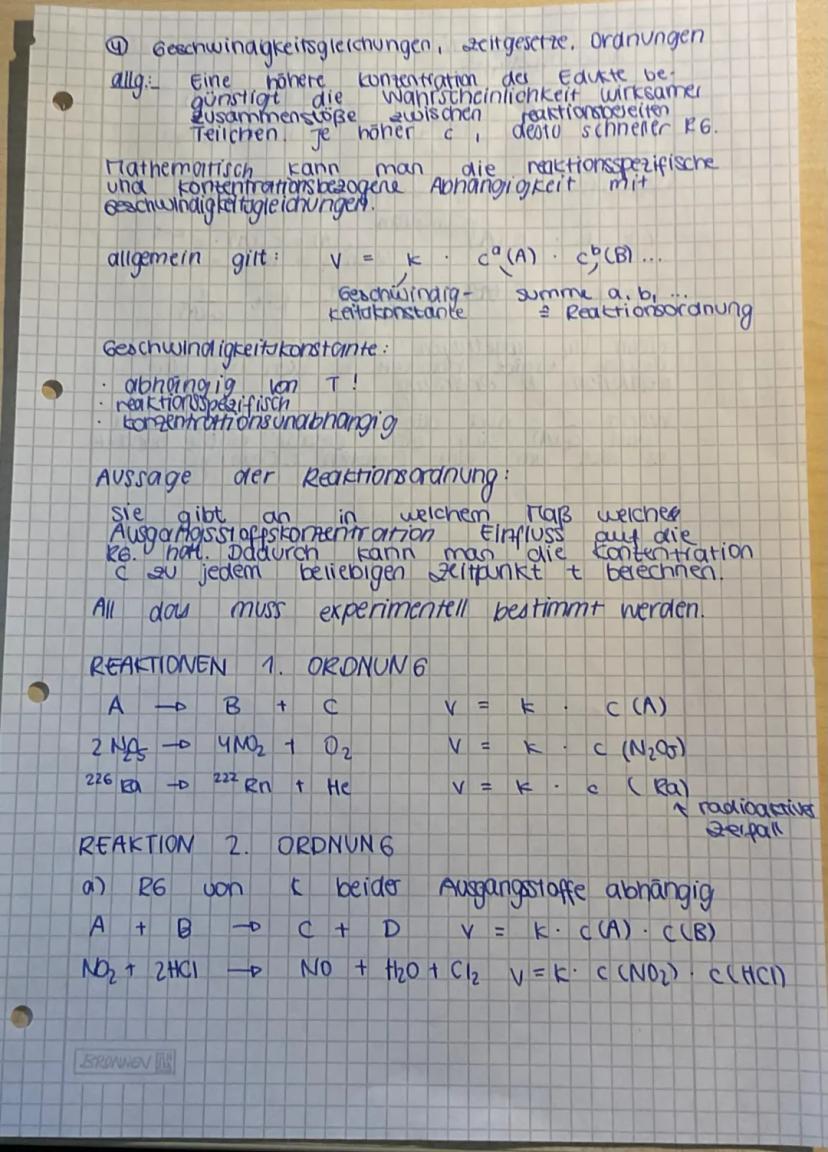 ④ Geschwindigkeitsgleichungen, Zeitgesetze, Ordnungen
allg.: Eine höhere Konzentration der Edukte be-
günstigt die Wahrscheinlichkeit wirksamer
Zusammenstöße zwischen reaktionsbereiten
Teilchen. Je höher c, desto schneller RG.
Mathematisch kann man die reaktionsspezifische
und konzentrationsbezogene Abhängigkeit mit
Geschwindigkeitsgleichungen.
allgemein gilt: v = k · cᵃ(A) · cᵇ(B) ...
Geschwindig- summe a, b, ...
keitskonstante ≙ Reaktionsordnung
Geschwindigkeitskonstante:
· abhängig von T!
· reaktionsspezifisch
· konzentrationsunabhängig
Aussage der Reaktionsordnung:
Sie gibt an in welchem Maß welche
Ausgangsstoffskonzentration Einfluss auf die
RG. hat. Dadurch kann man die Konzentration
c zu jedem beliebigen Zeitpunkt t berechnen.
All das muss experimentell bestimmt werden.
REAKTIONEN 1. ORDNUNG
A → B + C v = k · c (A)
2 N₂O₅ → 4NO₂ + O₂ v = k · c (N₂O₅)
²²⁶Ra → ²²²Rn + He v = k · c (Ra)
↑ radioaktiver
Zerfall
REAKTION 2. ORDNUNG
a) RG von c beider Ausgangsstoffe abhängig
A + B → C + D v = k · c(A) · c(B)
NO₂ + 2HCl → NO + H₂O + Cl₂ v = k · c(NO₂) · c(HCl)
BRUNNEN